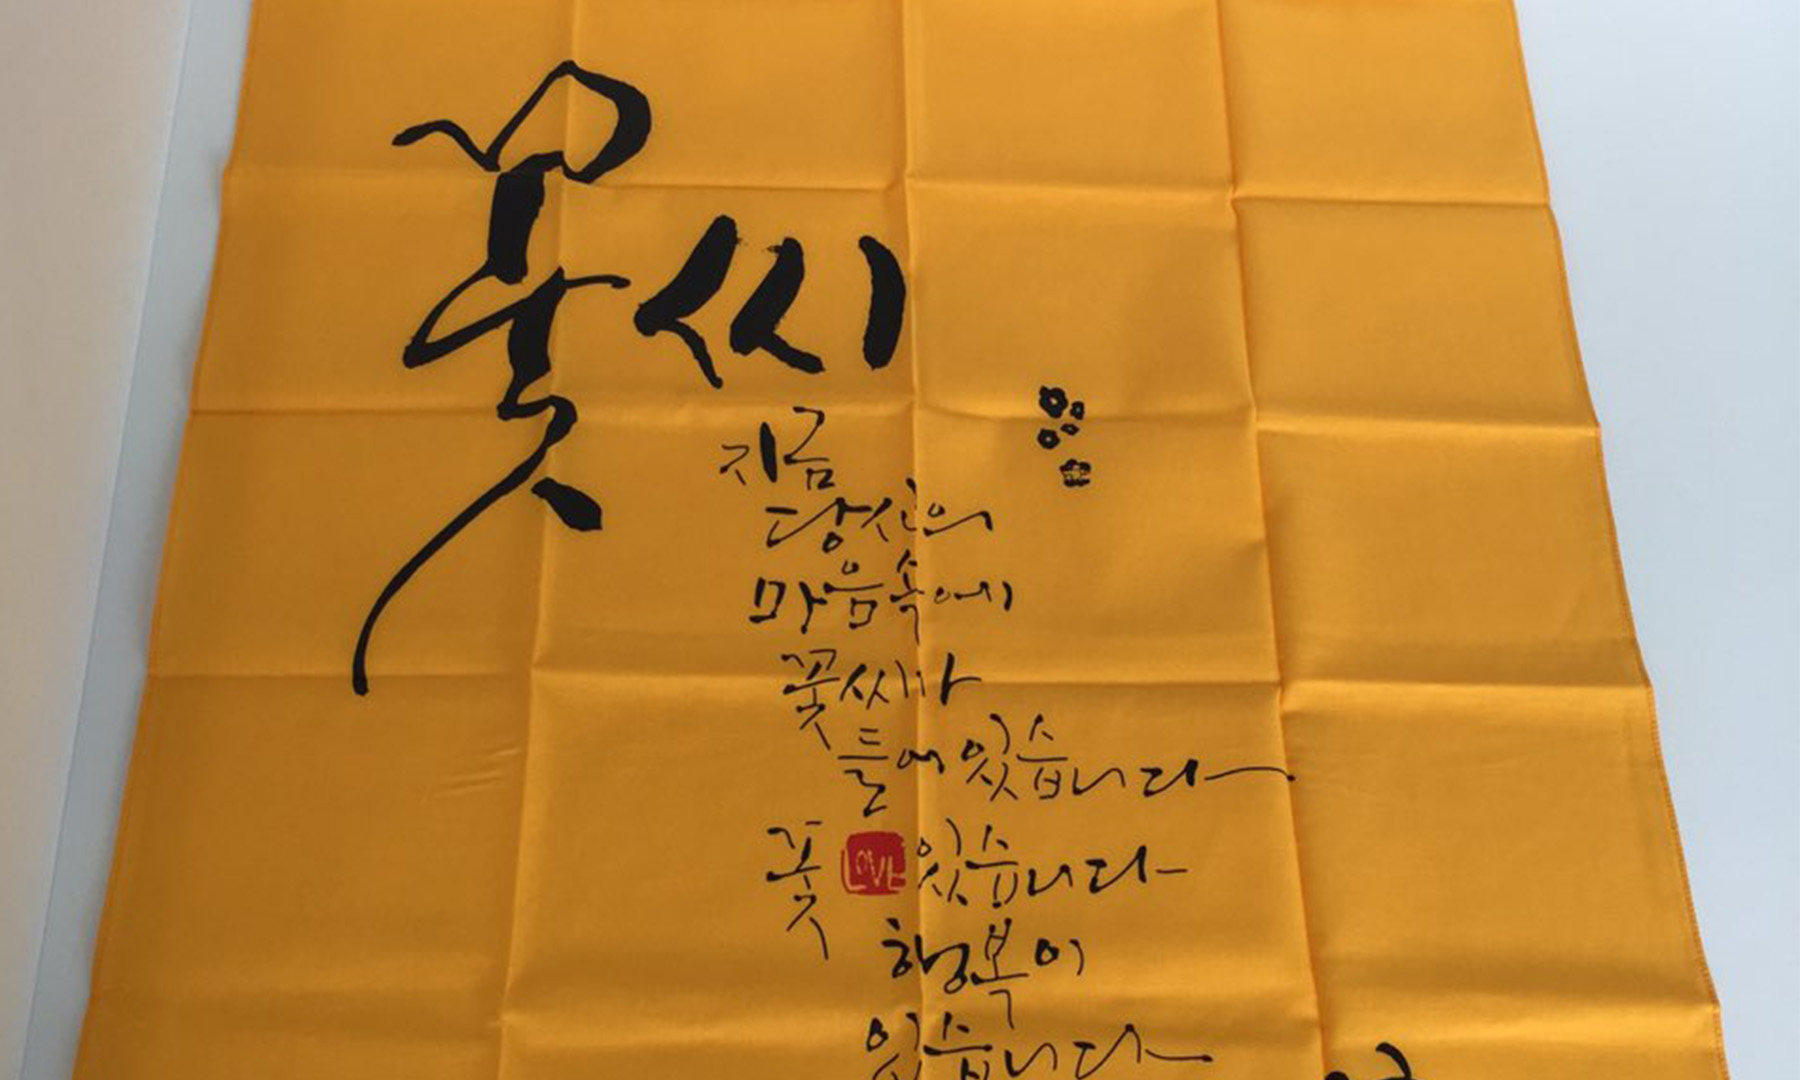 꽃씨
지금
당신의
마음속에
꽃씨가
들어있습니다
꽃 LOVE 있습니다
행복이
있습니다